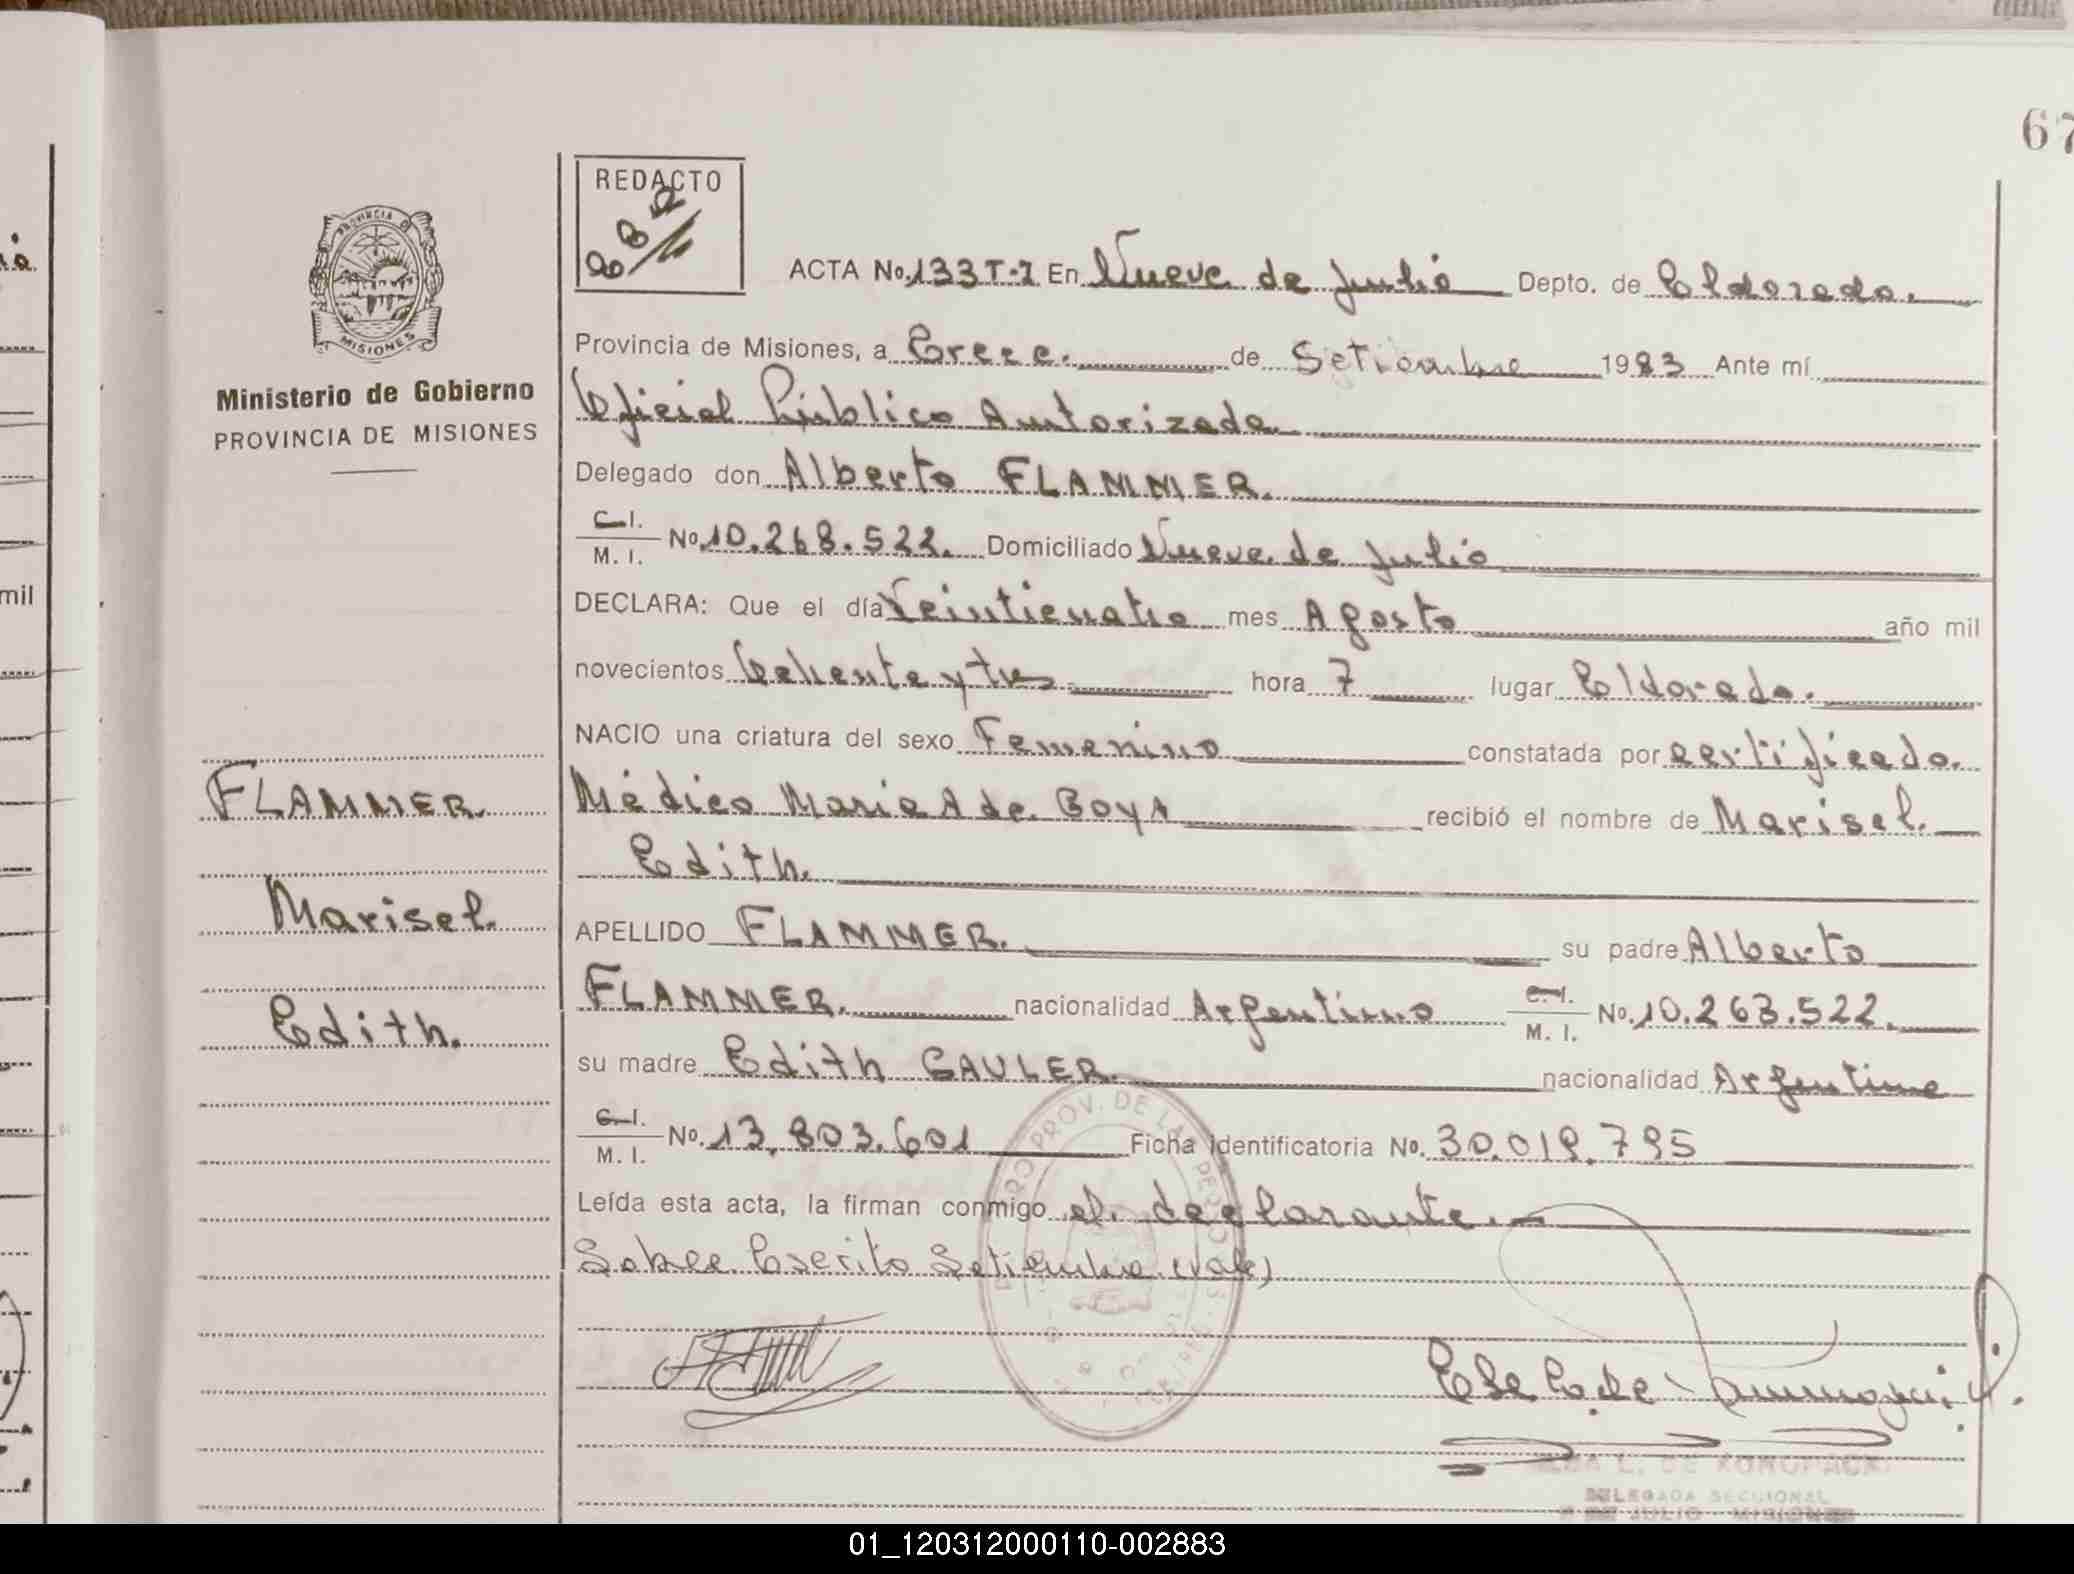 67
REDACTO
PROVINCIA DE
MISIONES
Ministerio de Gobierno
PROVINCIA DE MISIONES
ACTA No. 133 T-1 En Nueve de Julio Depto. de Eldorado.
Provincia de Misiones, a Trece. de Setiembre 1983 Ante mí
Oficial Público Autorizada
Delegado don Alberto FLAMMER.
C.I. M. I. No. 10.268.522. Domiciliado Nueve de Julio
DECLARA: Que el día Veinticuatro mes Agosto año mil
novecientos Ochenta y tres hora 7 lugar Eldorado.
NACIO una criatura del sexo Femenino constatada por certificado.
Médico Maria A de Goya recibió el nombre de Marisel.
Edith.
APELLIDO FLAMMER. su padre Alberto
FLAMMER. nacionalidad Argentino C.I. M. I. No. 10.263.522.
su madre Edith GAULER. nacionalidad Argentina
C.I. M. I. No. 13.803.601 Ficha identificatoria No. 30.019.795
Leída esta acta, la firman conmigo el declarante.
Sobre Escrito Setiembre (vale)
FLAMMER.
Marisel.
Edith.
DELEGADA SECCIONAL
9 DE JULIO - MISIONES
mil
01_120312000110-002883